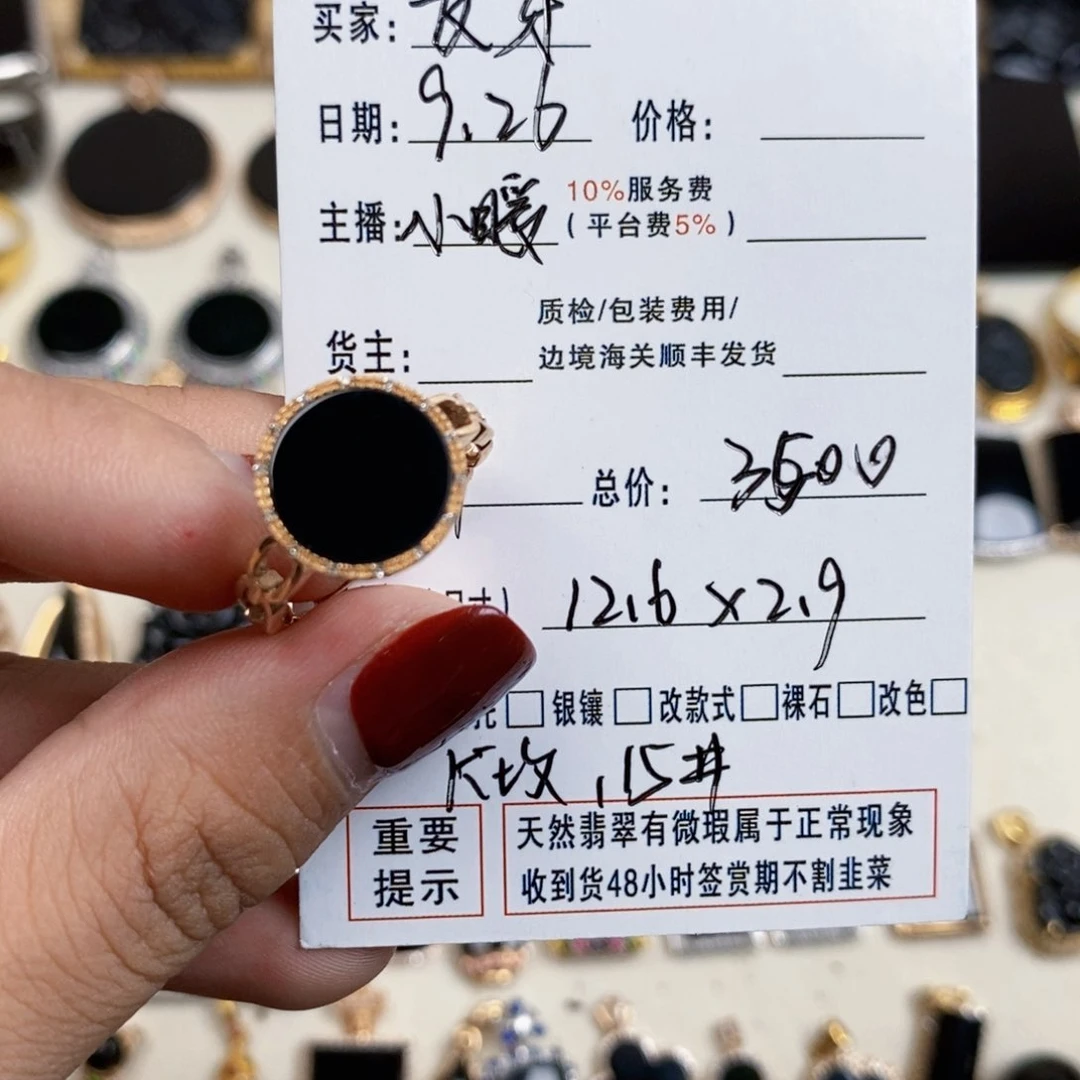 买家:
日期: 9.26 价格:
主播: 小暖 10%服务费
(平台费5%)
货主: 质检/包装费用/
边境海关顺丰发货
总价: 3500
12.6 x 2.9
托□ 银镶□ 改款式□ 裸石□ 改色□
K玫,15#
重要
提示
天然翡翠有微瑕属于正常现象
收到货48小时签赏期不割韭菜